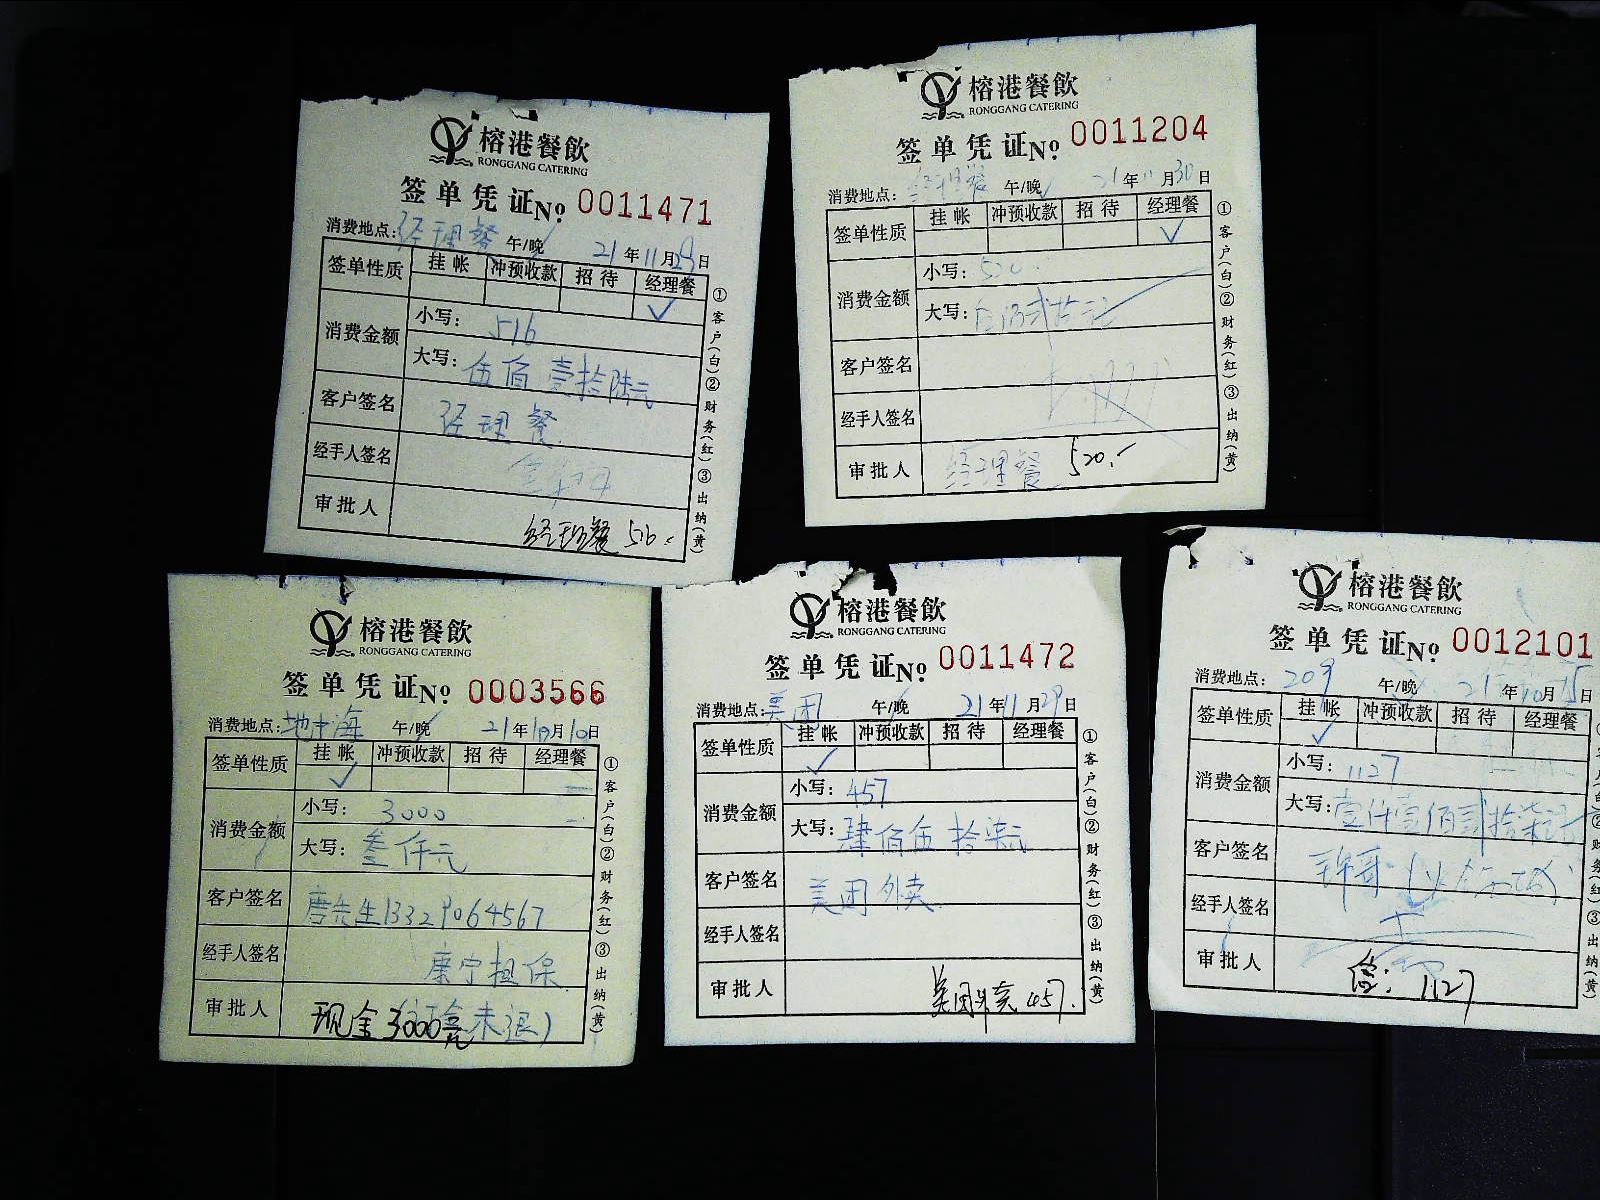 榕港餐飲
RONGGANG CATERING
签单凭证No 0011471
消费地点: 经理餐 午/晚 21年11月29日
签单性质 挂帐 冲预收款 招待 经理餐
✓
消费金额 小写: 516
大写: 伍佰壹拾陆元
客户签名 经理餐
经手人签名
审批人
经理餐 516.
①客户(白)②财务(红)③出纳(黄)
榕港餐飲
RONGGANG CATERING
签单凭证No 0011204
消费地点: 经理餐 午/晚 21年11月30日
签单性质 挂帐 冲预收款 招待 经理餐
✓
消费金额 小写: 520.
大写: 伍佰贰拾元
客户签名
经手人签名
审批人 经理餐 520.-
①客户(白)②财务(红)③出纳(黄)
榕港餐飲
RONGGANG CATERING
签单凭证No 0003566
消费地点: 地中海 午/晚 21年10月10日
签单性质 挂帐 冲预收款 招待 经理餐
✓
消费金额 小写: 3000
大写: 叁仟元
客户签名 唐先生13329064567
经手人签名 康宁担保
审批人 现金3000元 未退)
①客户(白)②财务(红)③出纳(黄)
榕港餐飲
RONGGANG CATERING
签单凭证No 0011472
消费地点: 美团 午/晚 21年11月29日
签单性质 挂帐 冲预收款 招待 经理餐
✓
消费金额 小写: 457
大写: 肆佰伍拾柒元
客户签名 美团外卖
经手人签名
审批人 美团外卖457.
①客户(白)②财务(红)③出纳(黄)
榕港餐飲
RONGGANG CATERING
签单凭证No 0012101
消费地点: 209 午/晚 21年10月15日
签单性质 挂帐 冲预收款 招待 经理餐
✓
消费金额 小写: 1127
大写: 壹仟壹佰贰拾柒元
客户签名
经手人签名
审批人 1127